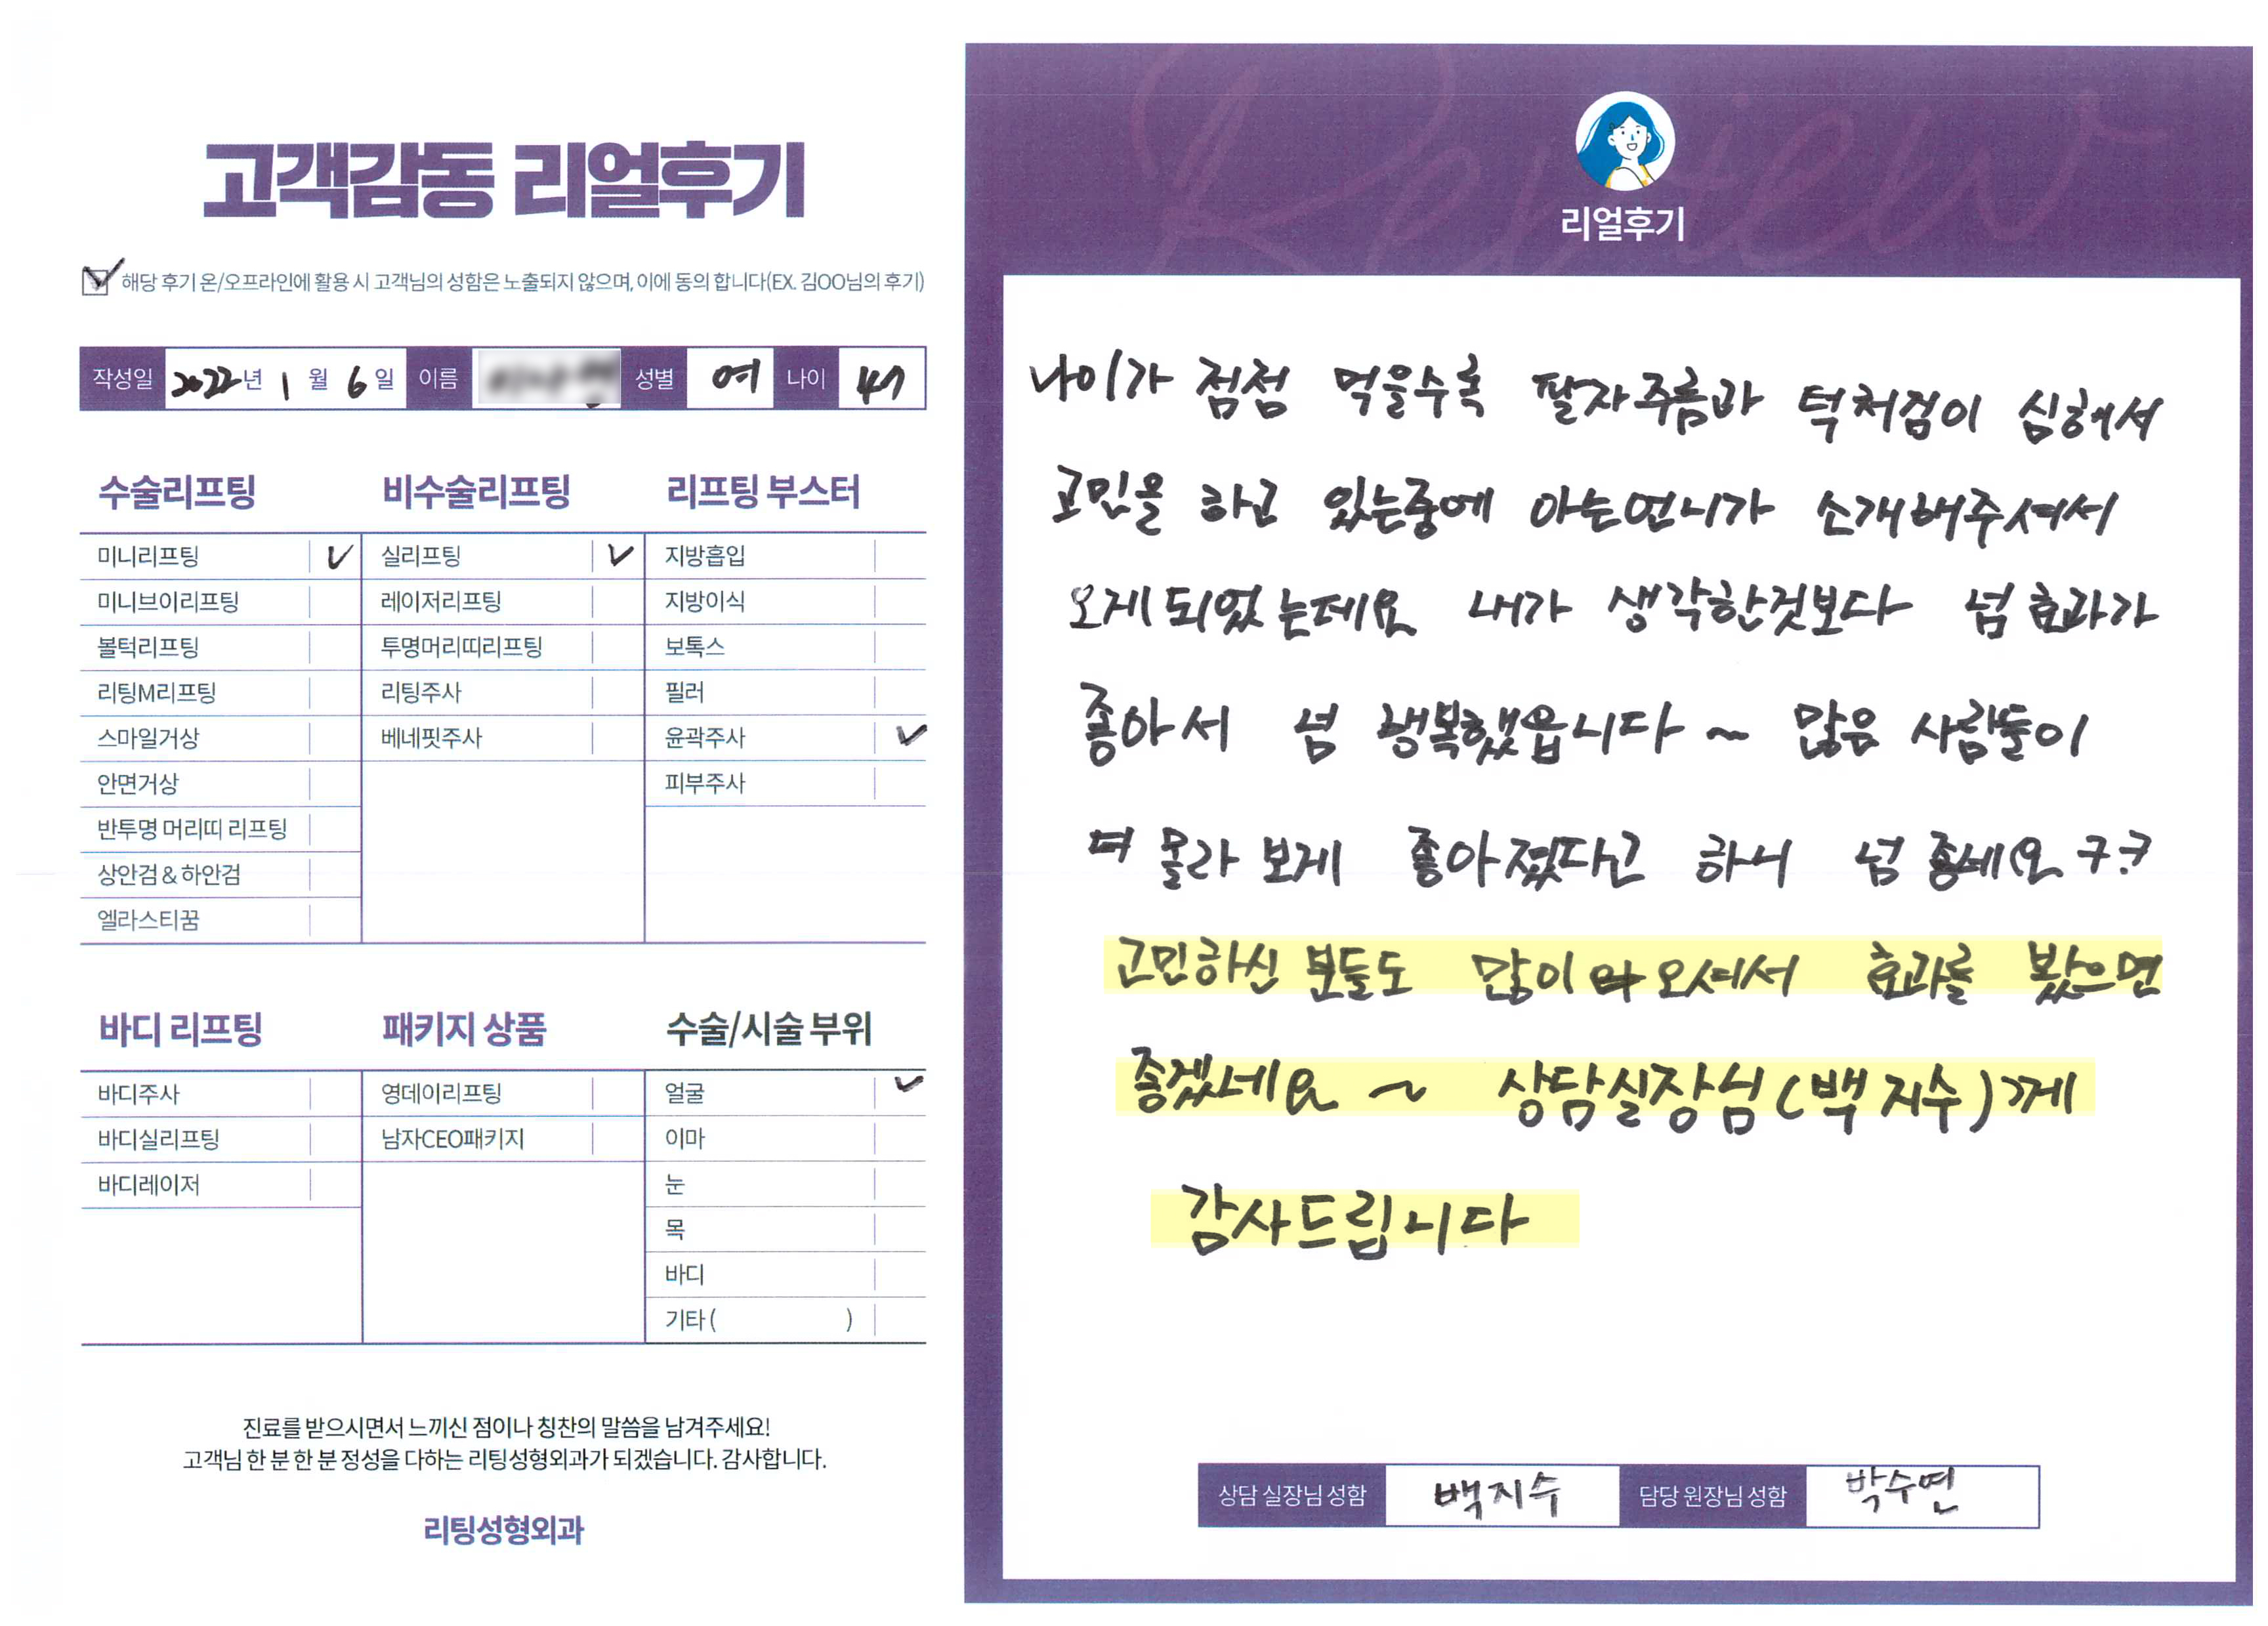 고객감동 리얼후기
해당 후기 온/오프라인에 활용 시 고객님의 성함은 노출되지 않으며, 이에 동의 합니다(EX. 김OO님의 후기)
작성일 2022년 1월 6일 이름 성별 여 나이 47
수술리프팅
미니리프팅 ✓
미니브이리프팅
볼턱리프팅
리팅M리프팅
스마일거상
안면거상
반투명 머리띠 리프팅
상안검 & 하안검
엘라스티꿈
비수술리프팅
실리프팅 ✓
레이저리프팅
투명머리띠리프팅
리팅주사
베네핏주사
리프팅 부스터
지방흡입
지방이식
보톡스
필러
윤곽주사 ✓
피부주사
바디 리프팅
바디주사
바디실리프팅
바디레이저
패키지 상품
영데이리프팅
남자CEO패키지
수술/시술 부위
얼굴 ✓
이마
눈
목
바디
기타 ( )
진료를 받으시면서 느끼신 점이나 칭찬의 말씀을 남겨주세요!
고객님 한 분 한 분 정성을 다하는 리팅성형외과가 되겠습니다. 감사합니다.
리팅성형외과
Review
리얼후기
나이가 점점 먹을수록 팔자주름과 턱처짐이 심해서
고민을 하고 있는중에 아는언니가 소개해주셔서
오게되었는데요 내가 생각한것보다 넘 효과가
좋아서 넘 행복했읍니다~ 많은 사람들이
몰라보게 좋아졌다고 하니 넘 좋네요 ㅋㅋ
고민하신 분들도 많이 오셔서 효과를 봤으면
좋겠네요~ 상담실장님(백지수)께
감사드립니다
상담 실장님 성함 백지수 담당 원장님 성함 박수연